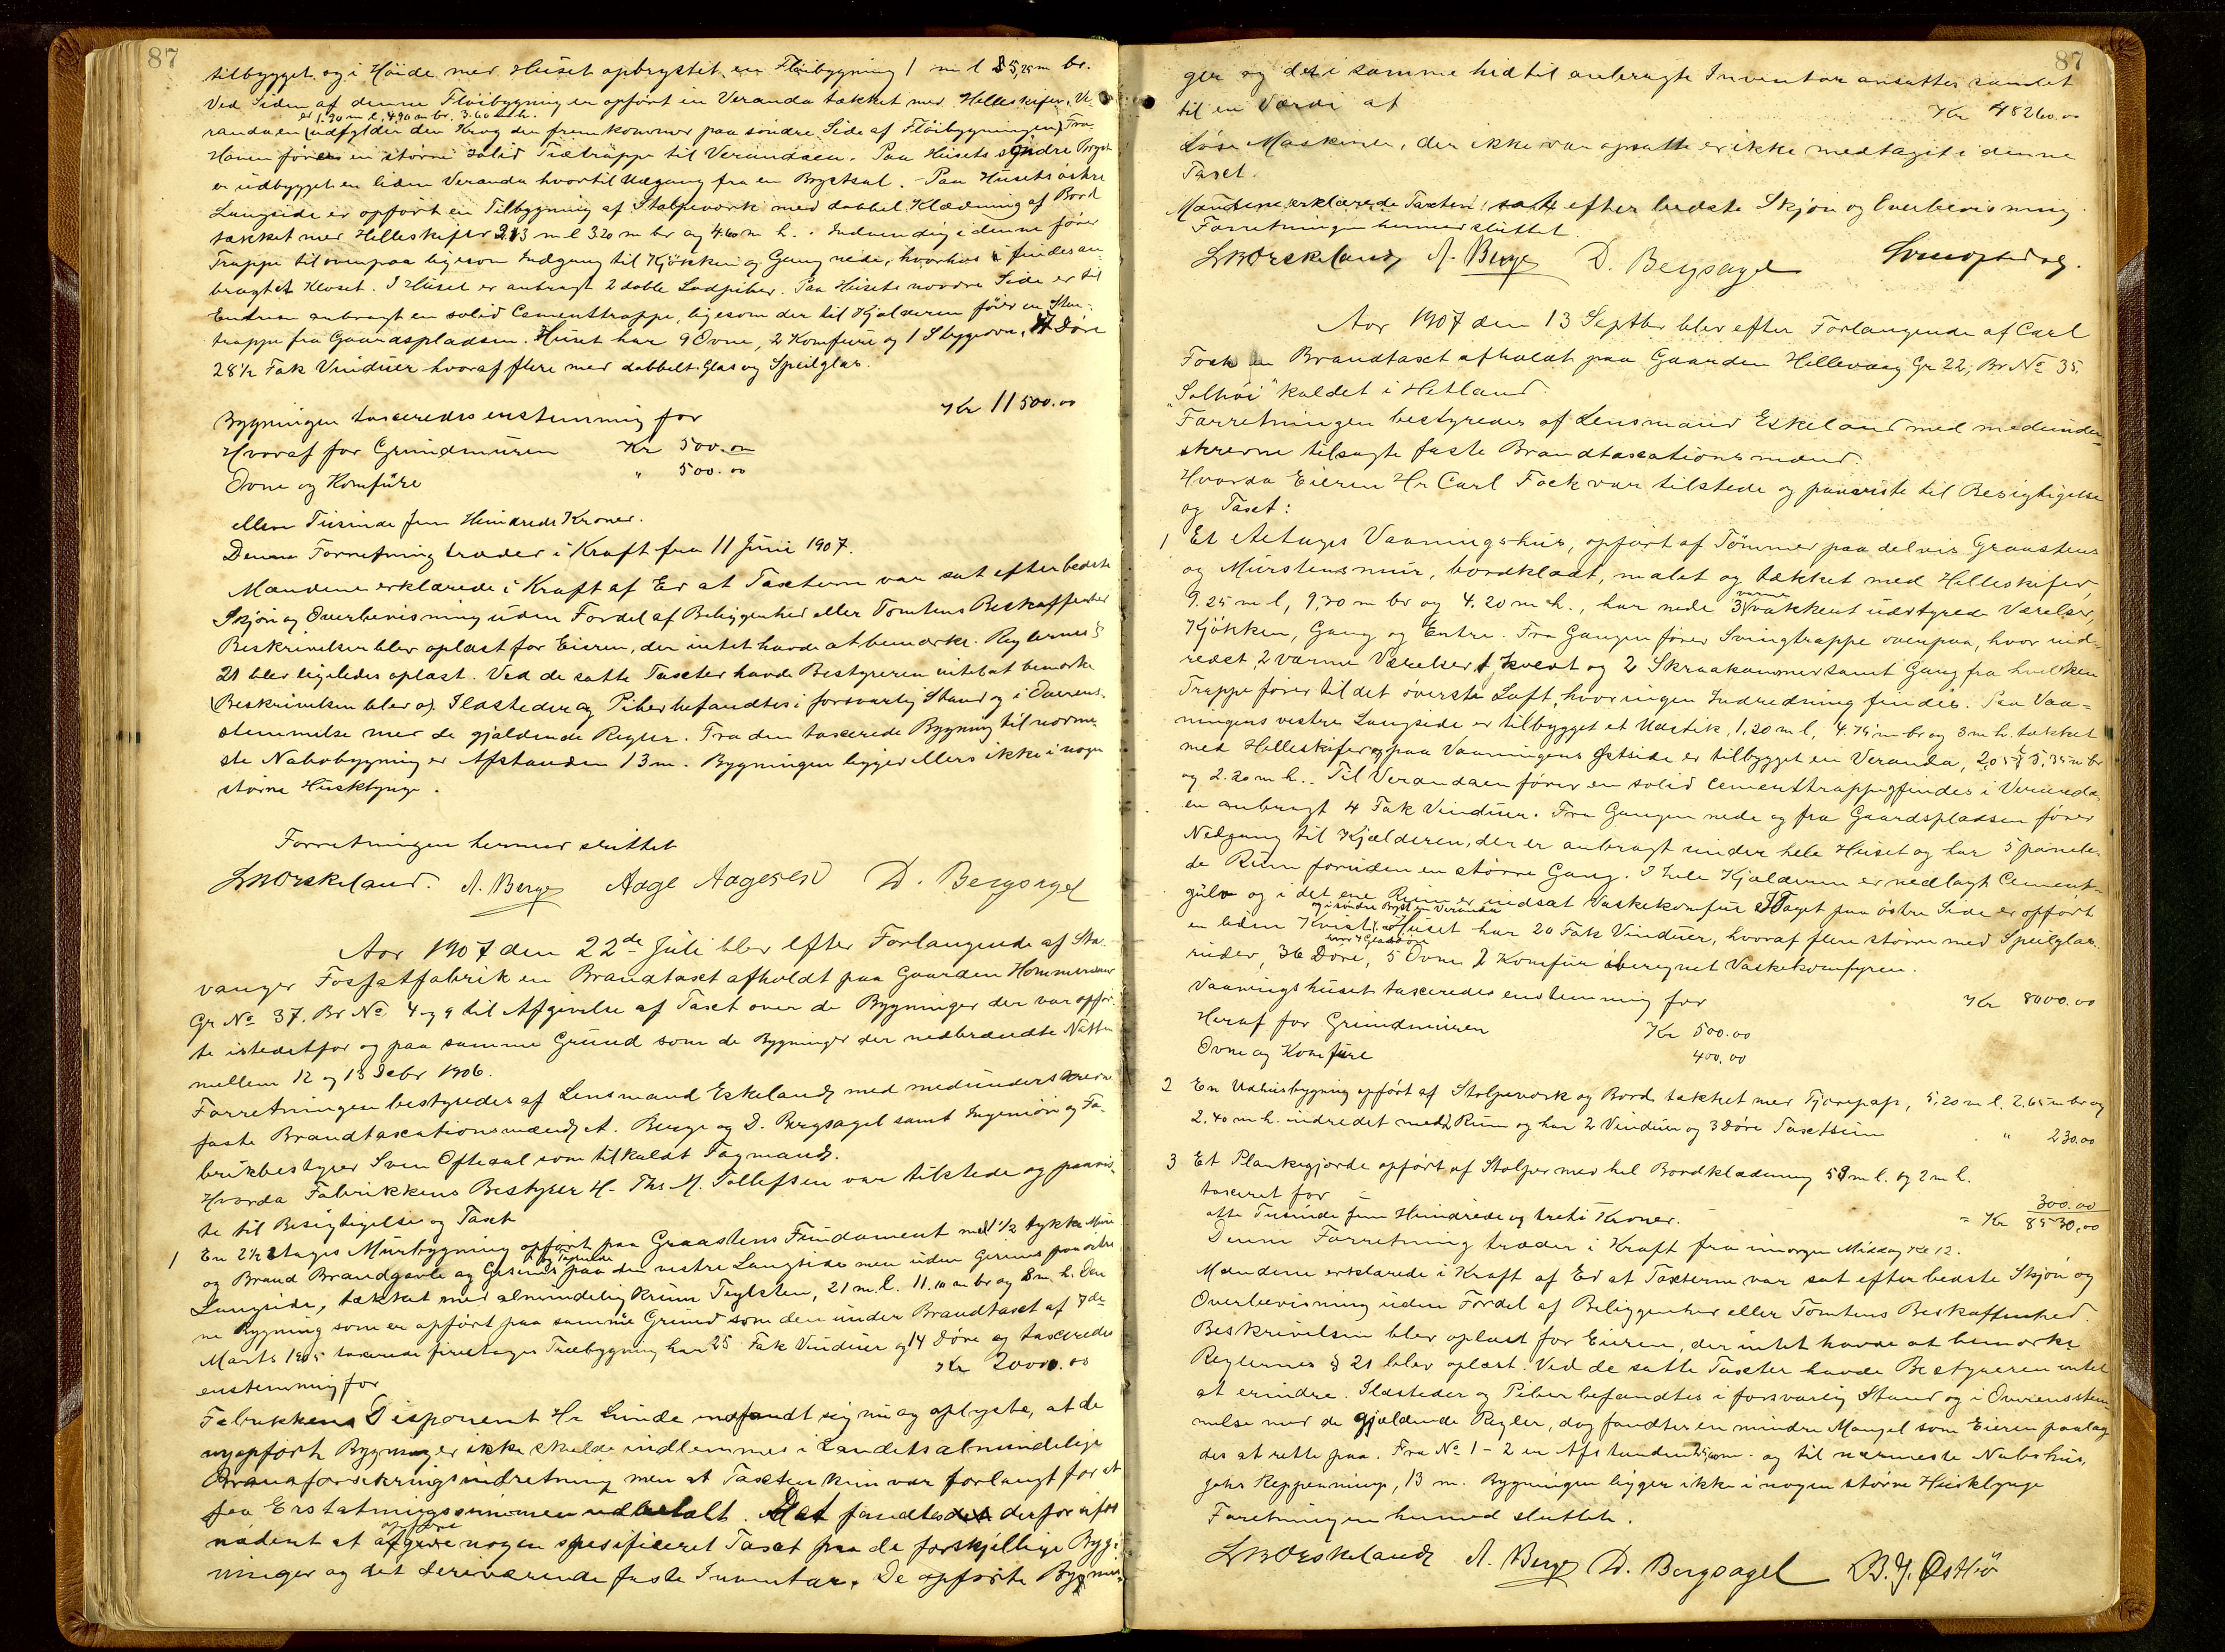 87
tilbygget og i Höide med Huset opbrystet en Flöibygning 1 m l 5,25 m br.
Ved Siden af denne Flöibygning er opfört en Veranda tækket med Helleskifer. Ve-
er 1.90 m l, 4.90 m br, 3.60 m h.
randaen (udfylder den Krog der fremkommer paa söndre Side af Flöibygningen) Fra
Haven förer en större solid Trætrappe til Verandaen. Paa Husets söndre Bryst
er udbygget en liden Veranda hvortil Udgang fra en Brystsal. Paa Husets östre
Langside er opfört en Tilbygning af Stolpeværk med dobbel Klædning af Bord
tækket med Helleskifer 2.13 m l 3.20 m br og 4.60 m h. Indvendig i denne förer
Trappe til ovenpaa ligesom Indgang til Kjökken og Gang nede, hvorhos findes an-
bragt et Kloset. I Huset er anbragt 2 doble Lodpiber. Paa Husets nordre Side er til
Entreen anbragt en solid Cementtrappe, ligesom der til Kjælderen förer en Sten-
trappe fra Gaardspladsen. Huset har 9 Ovne, 2 Komfure og 1 Strygeovn, 17 Döre
28½ Fak Vinduer hvoraf flere med dobbelt Glas og Speilglas.
Bygningen taxeredes enstemmig for Kr 11500.00
Hvoraf for Grundmuren Kr 500.00
Ovne og Komfure " 500.00
elleve Tusinde fem Hundrede Kroner.
Denne Forretning træder i Kraft fra 11 Juni 1907.
Mændene erklærede i Kraft af Ed at Taxterne var sat efter bedste
Skjön og Overbevisning uden Fordel af Beliggenhed eller Tomtens Beskaffenhed
Beskrivelsen blev oplæst for Eieren, der intet havde at bemærke. Reglernes §
21 blev ligeledes oplæst. Ved de satte Taxter havde Bestyreren intet at bemærke
(Beskrivelsen blev o). Ildsteder og Piber befandtes i forsvarlig Stand og i Overens-
stemmelse med de gjældende Regler. Fra den taxerede Bygning til nærme-
ste Nabobygning er Afstanden 13 m. Bygningen ligger ellers ikke i nogen
större Husklynge.
Forretningen hermed sluttet
LM Eskeland. A. Berge Aage Aagesen D. Bergsagel
Aar 1907 den 22de Juli blev efter Forlangende af Sta-
vanger Fosfatfabrik en Brandtaxt afholdt paa Gaarden Hommersand
Gr No 37. Br No 4 og 9 til Afgivelse af Taxt over de Bygninger der var opför-
te istedetfor og paa samme Grund som de Bygninger der nedbrændte Natten
mellem 12 og 13 Debr 1906.
Forretningen bestyredes af Lensmand Eskeland med medunderskrevne
faste Brandtaxationsmænd A. Berge og D. Bergsagel samt Ingeniör og Fa-
brikbestyrer Sven Oftedal som tilkaldt Fagmand.
Hvorda Fabrikkens Bestyrer Hr. Ths M. Tollefsen var tilstede og paavis-
te til Besigtigelse og Taxt
1 En 2½ Etages Murbygning opfört paa Graastens Fundament med 1½ tykke Mure
og Brand Brandgavle og Gesims paa den vestre Langside men uden Gesims paa östre
Langside, tækket med almindelig krum Teglsten, 21 m. l. 11.10 m br og 8 m. h. Den-
ne Bygning som er opfört paa samme Grund som den under Brandtaxt af 7de
Marts 1905 taxerede fireetages Træbygning har 25 Fak Vinduer og 14 Döre og taxeredes
enstemmig for Kr 20000.00
Fabrikkens Disponent Hr Lunde indfandt sig nu og oplyste, at de
nyopfört Bygninger ikke skulde indlemmes i Landets almindelige
Brandforsikringsindretning men at Taxten kun var forlangt for at
faa Erstatningssummen udbetalt. Det fandtes derfor ufor-
nödent at afgive nogen spesificeret Taxt paa de forskjellige Byg-
ninger og det deriværende faste Inventar. De opförte Bygnin-
87
ger og det i samme hidtil anbragte Inventar ansattes samlet
til en Værdi af Kr 48260.00
Löse Maskiner, der ikke var opsatte er ikke medtaget i denne
Taxt.
Mændene erklærede Taxten sat efter bedste Skjön og Overbevisning.
Forretningen hermed sluttet.
LM Eskeland A. Berge D. Bergsagel
Aar 1907 den 13 Septbr blev efter Forlangende af Carl
Fock en Brandtaxt afholdt paa Gaarden Hillevaag Gr 22, Br No 35.
"Solhöi" kaldet i Hetland.
Forretningen bestyredes af Lensmand Eskeland med medunder-
skrevne tilsagte faste Brandtaxationsmænd.
Hvorda Eieren Hr Carl Fock var tilstede og paaviste til Besigtigelse
og Taxt:
1 Et Aetages Vaaningshus, opfört af Tömmer paa delvis Graastens
og Murstensmur, bordklædt, malet og tækket med Helleskifer,
9.25 m l, 9,30 m br og 4.20 m h., har nede 3 varme vakkert udstyrede Værelser,
Kjökken, Gang og Entre. Fra Gangen förer Svingtrappe ovenpaa, hvor ind-
redet 2 varme Værelser, 1 Kvist og 2 Skraakammer samt Gang fra hvilken
Trappe förer til det överste Loft, hvor ingen Indredning findes. Paa Vaa-
ningens vestre Langside er tilbygget et Udstik, 1.20 m l, 4.75 m br og 3 m h. tækket
med Helleskifer og paa Vaaningens Östside er tilbygget en Veranda, 2,05 m l 5.35 m br
og 2.20 m h. Til Verandaen förer en solid Cementtrappe og findes i Veranda-
en anbragt 4 Fak Vinduer. Fra Gangen nede og fra Gaardspladsen förer
Nedgang til Kjælderen, der er anbragt under hele Huset og har 5 panele-
de Rum foruden en större Gang. I hele Kjælderen er nedlagt Cement-
gulv og i det ene Rum er indsat Vaskekomfur. I Taget paa östre Side er opfört
og i söndre Bryst en Veranda
en liden Kvist. Huset har 20 Fak Vinduer, hvoraf flere större med Speilglas-
hvor 4 Glasdöre
ruder, 36 Döre, 5 Ovne 2 Komfur iberegnet Vaskekomfyren.
Vaaningshuset taxeredes enstemmig for Kr 8000.00
Heraf for Grundmuren Kr 500.00
Ovne og Komfure 400.00
2 En Udhusbygning opfört af Stolpeværk og Bord tækket med Tjærepap, 5,20 m l. 2.65 m br og
2.40 m h. indredet med 2 Rum og har 2 Vinduer og 3 Döre Taxtsum " 230.00
3 Et Plankegjerde opfört af Stolper med hel Bordklædning 58 m l. og 2 m h.
taxeret for 300.00
otte Tusinde fem Hundrede og treti Kroner. = Kr 8530.00
Denne Forretning træder i Kraft fra imorgen Middag Kl 12.
Mændene erklærede i Kraft af Ed at Taxterne var sat efter bedste Skjön og
Overbevisning uden Fordel af Beliggenhed eller Tomtens Beskaffenhed.
Beskrivelsen blev oplæst for Eieren, der intet havde at bemærke
Reglernes § 21 blev oplæst. Ved de satte Taxter havde Bestyreren intet
at erindre. Ildsteder og Piber befandtes i forsvarlig Stand og i Overensstem-
melse med de gjældende Regler, dog fandtes en mindre Mangel som Eieren paalag-
des at rette paa. Fra No 1 - 2 er Afstanden m. og til nærmeste Nabohus,
Johs Reppenning, 13 m. Bygningen ligger ikke i nogen större Husklynge
Forretningen hermed sluttet.
LM Eskeland A. Berge D. Bergsagel B. J. Östhö